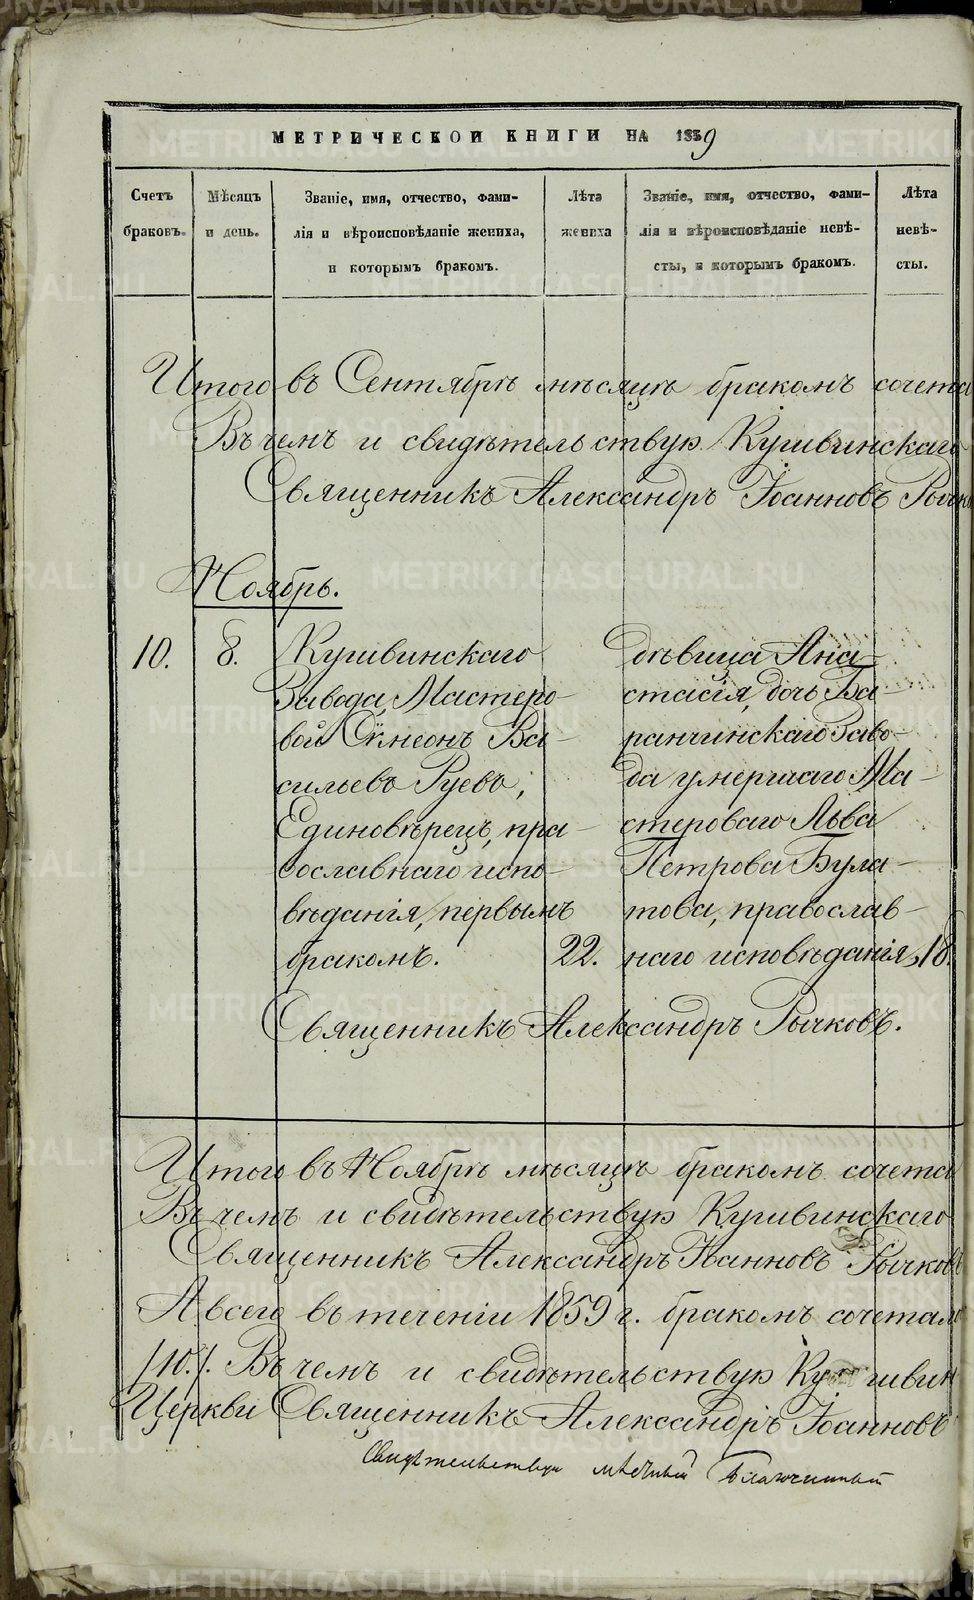 МЕТРИЧЕСКОЙ КНИГИ НА 1859
Счетъ браковъ.
Мѣсяцъ и день.
Званіе, имя, отчество, фами-
лія и вѣроисповѣданіе жениха,
и которымъ бракомъ.
Лѣта жениха
Званіе, имя, отчество, фами-
лія и вѣроисповѣданіе невѣ-
сты, и которымъ бракомъ.
Лѣта невѣ-
сты.
Итого въ Сентябрѣ мѣсяцѣ бракомъ сочета
Въ чемъ и свидѣтельствую Кушвинскаго
Священникъ Александръ Іоанновъ Рычко
Ноябрь.
10.
8.
Кушвинскаго
Завода, Мастеро-
вой Сѵмеонъ Ва-
сильевъ Руевъ,
Единовѣрецъ, пра-
вославнаго испо-
вѣданія, первымъ
бракомъ.
22.
дѣвица Ана-
стасія, дочь Ба-
ранчинскаго Заво-
да умершаго Ма-
стероваго Льва
Петрова Була-
това, православ-
наго исповѣданія,
18.
Священникъ Александръ Рычковъ.
Итого въ Ноябрѣ мѣсяцѣ бракомъ сочета
Въ чемъ и свидѣтельствую Кушвинскаго
Священникъ Александръ Іоанновъ Рычковъ
А всего въ теченіи 1859 г. бракомъ сочетал
/10./. Въ чемъ и свидѣтельствую Кушвин
Церкви Священникъ Александръ Іоанновъ
Свидѣтельствую мѣстный Благочинный
METRIKI.GASO-URAL.RU